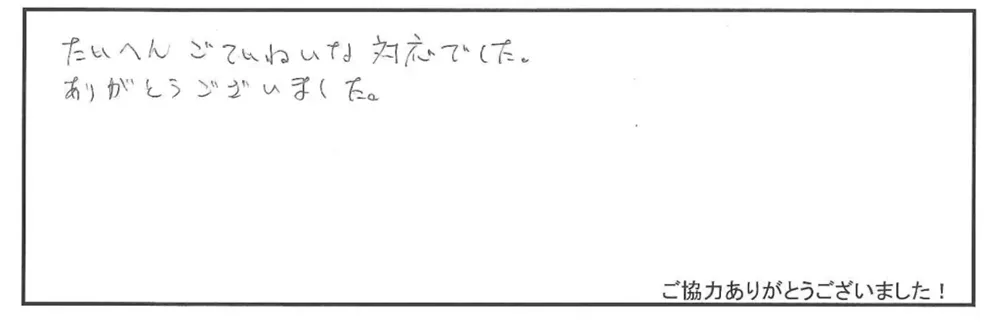 たいへん ごていねいな 対応でした。
ありがとうございました。
ご協力ありがとうございました！